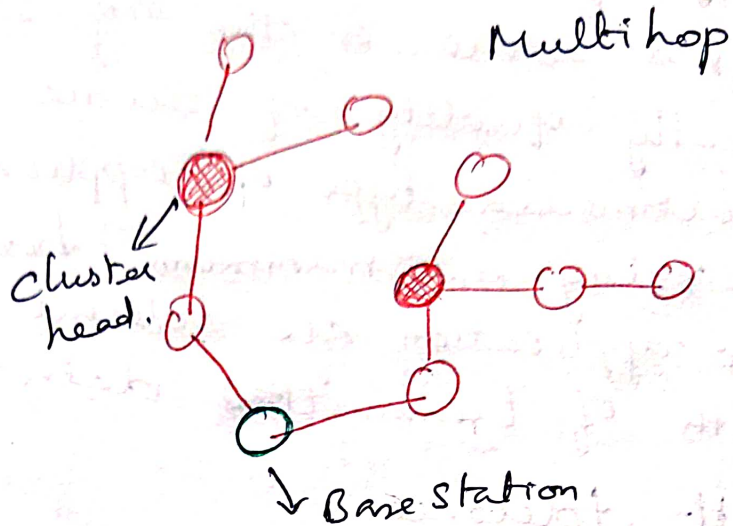 Multihop
Cluster
head.
Base Station